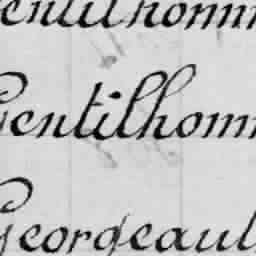 Gentilhomm
Gentilhomm
Georgeaul